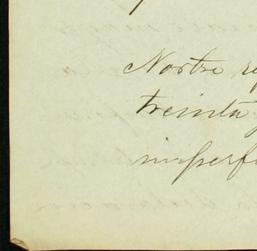 Nostro re
treinta
imperf